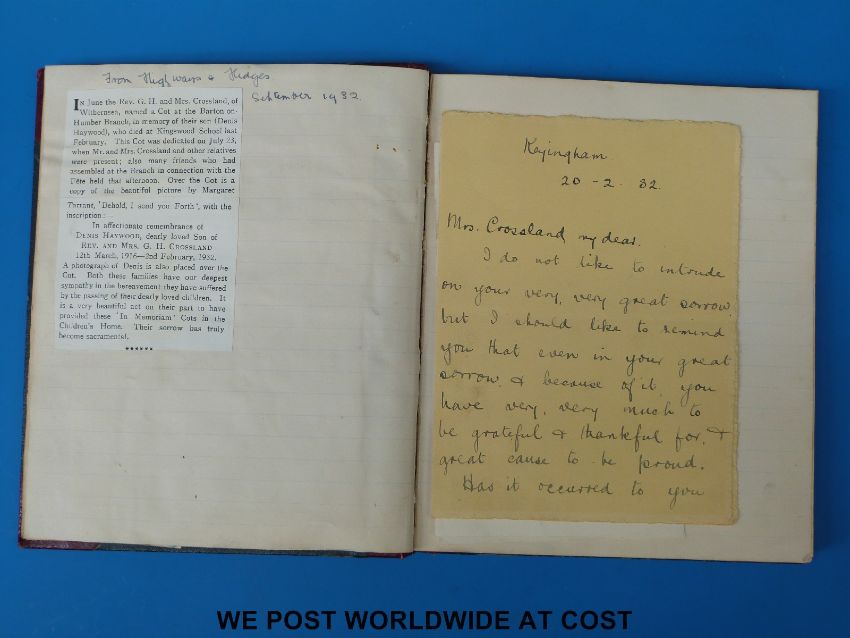 From Highways & Hedges
September 1932.
IN June the Rev. G. H. and Mrs. Crossland, of
Withernsea, named a Cot at the Barton-on-
Humber Branch, in memory of their son (Denis
Haywood), who died at Kingswood School last
February. This Cot was dedicated on July 23,
when Mr. and Mrs. Crossland and other relatives
were present; also many friends who had
assembled at the Branch in connection with the
Fête held that afternoon. Over the Cot is a
copy of the beautiful picture by Margaret
Tarrant, 'Behold, I send you Forth', with the
inscription:
In affectionate remembrance of
DENIS HAYWOOD, dearly loved Son of
REV. AND MRS. G. H. CROSSLAND
12th March, 1916—2nd February, 1932.
A photograph of Denis is also placed over the
Cot. Both these families have our deepest
sympathy in the bereavement they have suffered
by the passing of their dearly loved children. It
is a very beautiful act on their part to have
provided these 'In Memoriam' Cots in the
Children's Home. Their sorrow has truly
become sacramental.
******
Keyingham.
20-2.32.
Mrs. Crossland my dear.
I do not like to intrude
on your very, very great sorrow.
but I should like to remind
you that even in your great
sorrow, & because of it, you
have very, very much to
be grateful & thankful for, &
great cause to be proud.
Has it occurred to you
WE POST WORLDWIDE AT COST